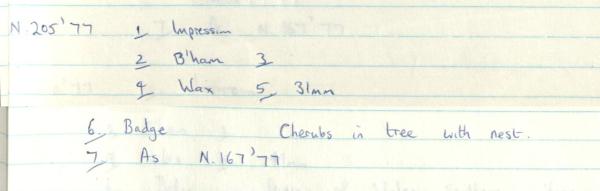 N.205'77 1 Impression
2 B'ham 3
4 Wax 5, 31mm
6, Badge Cherubs in tree with nest.
7, As N.167'77